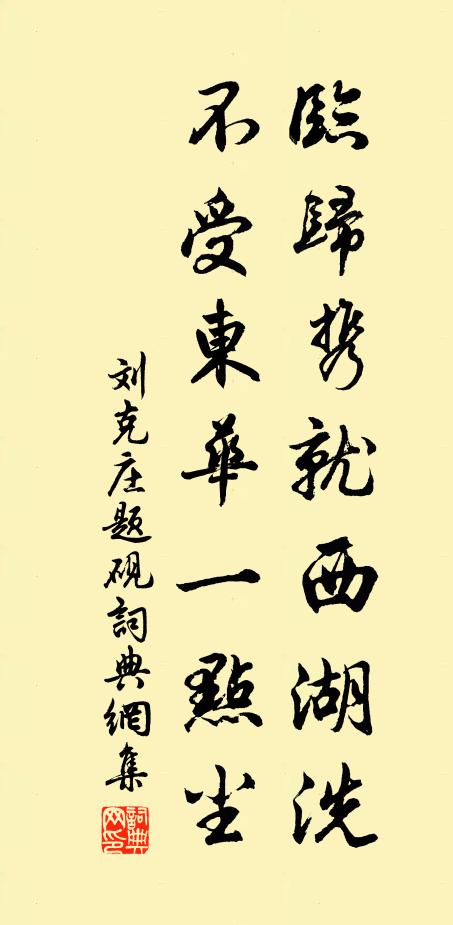 臨歸携就西湖洗
不受東華一點尘
刘克庄题砚詞典網集
詞典網印